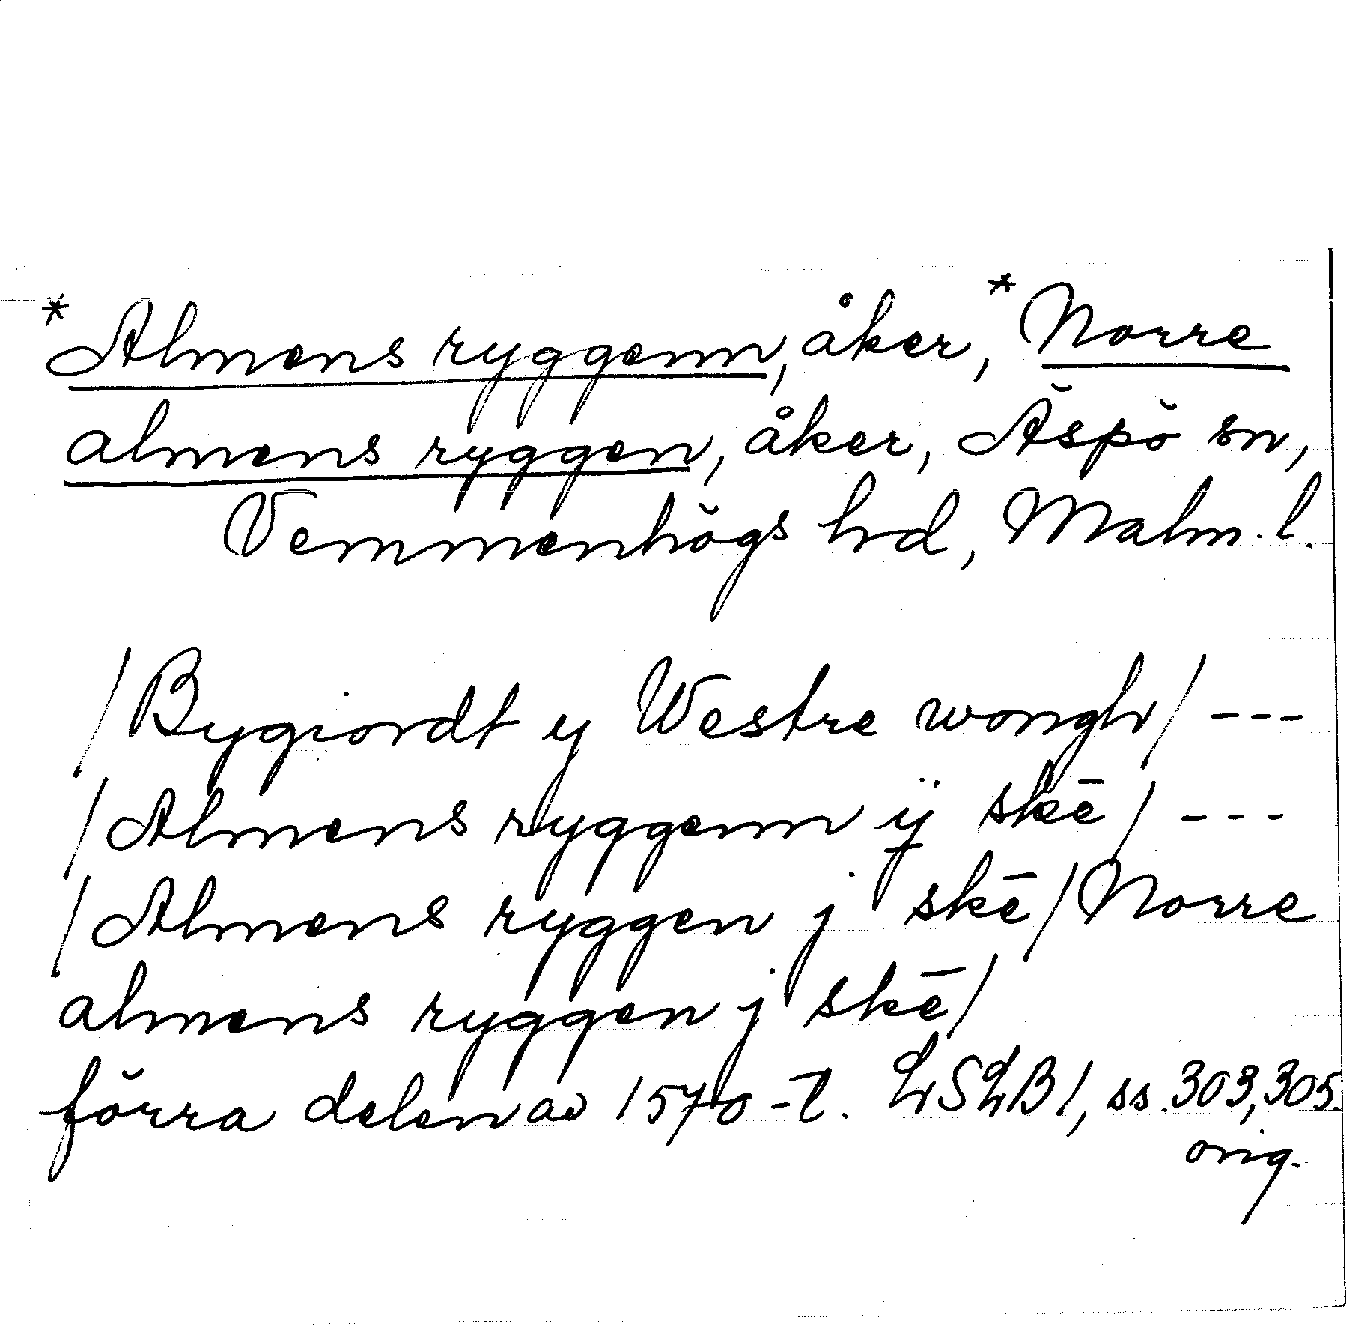 *Almens ryggenn, åker, *Norre
almens ryggen, åker, Äspö sn,
Vemmenhögs hd, Malm. l.
/Bygiordt y Westre wongh/ ---
/Almens ryggenn ij skē/ ---
/Almens ryggen j skē/Norre
almens ryggen j skē/
förra delen av 1570-t. LSLB 1, ss. 303, 305.
orig.